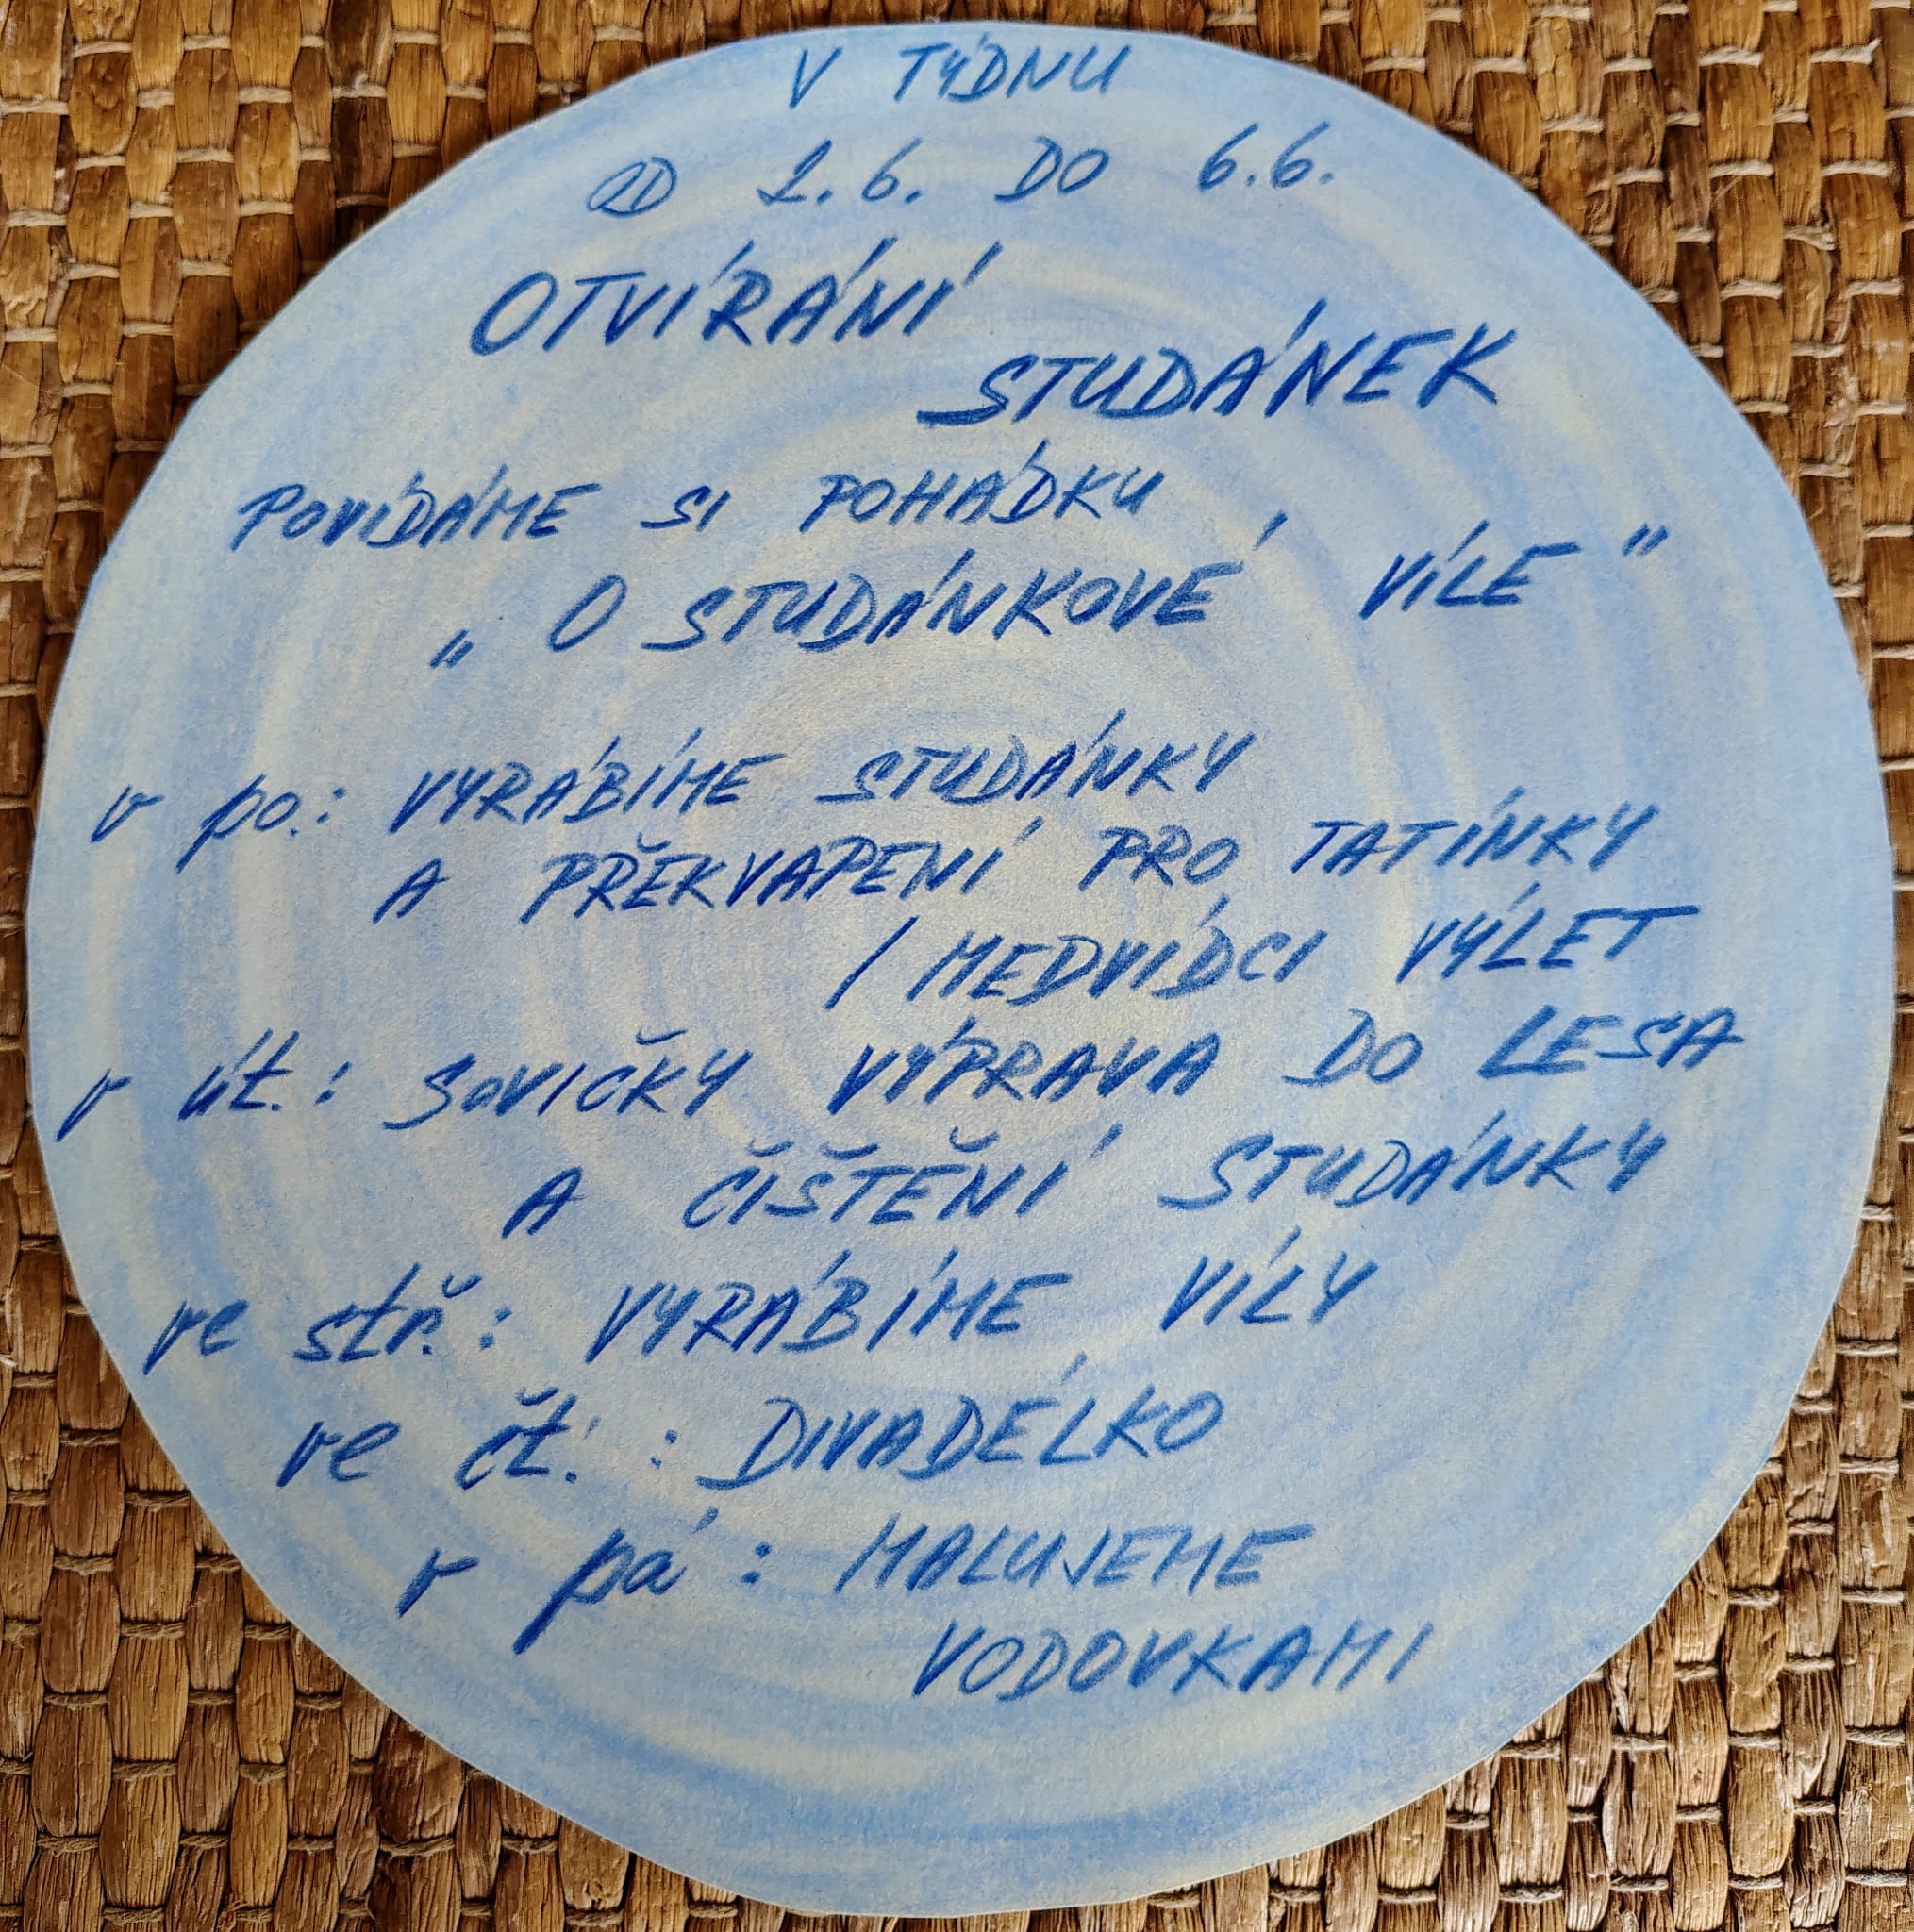 V TÝDNU
OD 2.6. DO 6.6.
OTVÍRÁNÍ
STUDÁNEK
POVÍDÁME SI POHÁDKU
„ O STUDÁNKOVÉ VÍLE "
v po.: VYRÁBÍME STUDÁNKY
A PŘEKVAPENÍ PRO TATÍNKY
/ MEDVÍDCI VÝLET
v út.: SOVIČKY VÝPRAVA DO LESA
A ČIŠTĚNÍ STUDÁNKY
ve stř.: VYRÁBÍME VÍLY
ve čt.: DIVADÉLKO
v pá: MALUJEME
VODOVKAMI